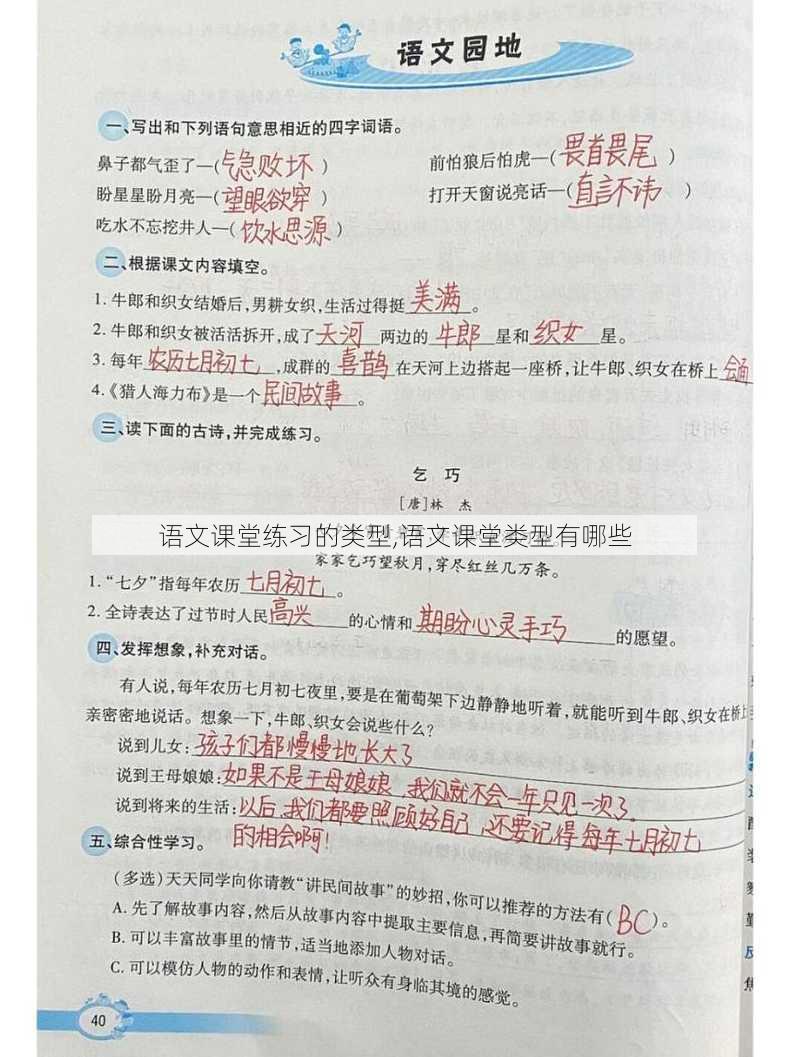 语文园地
一、写出和下列语句意思相近的四字词语。
鼻子都气歪了—(气急败坏) 前怕狼后怕虎—(畏首畏尾)
盼星星盼月亮—(望眼欲穿) 打开天窗说亮话—(直言不讳)
吃水不忘挖井人—(饮水思源)
二、根据课文内容填空。
1. 牛郎和织女结婚后,男耕女织,生活过得挺美满。
2. 牛郎和织女被活活拆开,成了天河两边的牛郎星和织女星。
3. 每年农历七月初七,成群的喜鹊在天河上边搭起一座桥,让牛郎、织女在桥上会面
4.《猎人海力布》是一个民间故事。
三、读下面的古诗,并完成练习。
乞 巧
[唐]林 杰
语文课堂练习的类型,语文课堂类型有哪些
家家乞巧望秋月,穿尽红丝几万条。
1. “七夕”指每年农历七月初七。
2. 全诗表达了过节时人民高兴的心情和期盼心灵手巧的愿望。
四、发挥想象,补充对话。
有人说,每年农历七月初七夜里,要是在葡萄架下边静静地听着,就能听到牛郎、织女在桥上
亲密密地说话。想象一下,牛郎、织女会说些什么?
说到儿女:孩子们都慢慢地长大了
说到王母娘娘:如果不是王母娘娘 我们就不会一年只见一次了.
说到将来的生活:以后,我们都要照顾好自己,还要记得每年七月初七
的相会啊!
五、综合性学习。
(多选)天天同学向你请教“讲民间故事”的妙招,你可以推荐的方法有(BC)。
A. 先了解故事内容,然后从故事内容中提取主要信息,再简要讲故事就行。
B. 可以丰富故事里的情节,适当地添加人物对话。
C. 可以模仿人物的动作和表情,让听众有身临其境的感觉。
40